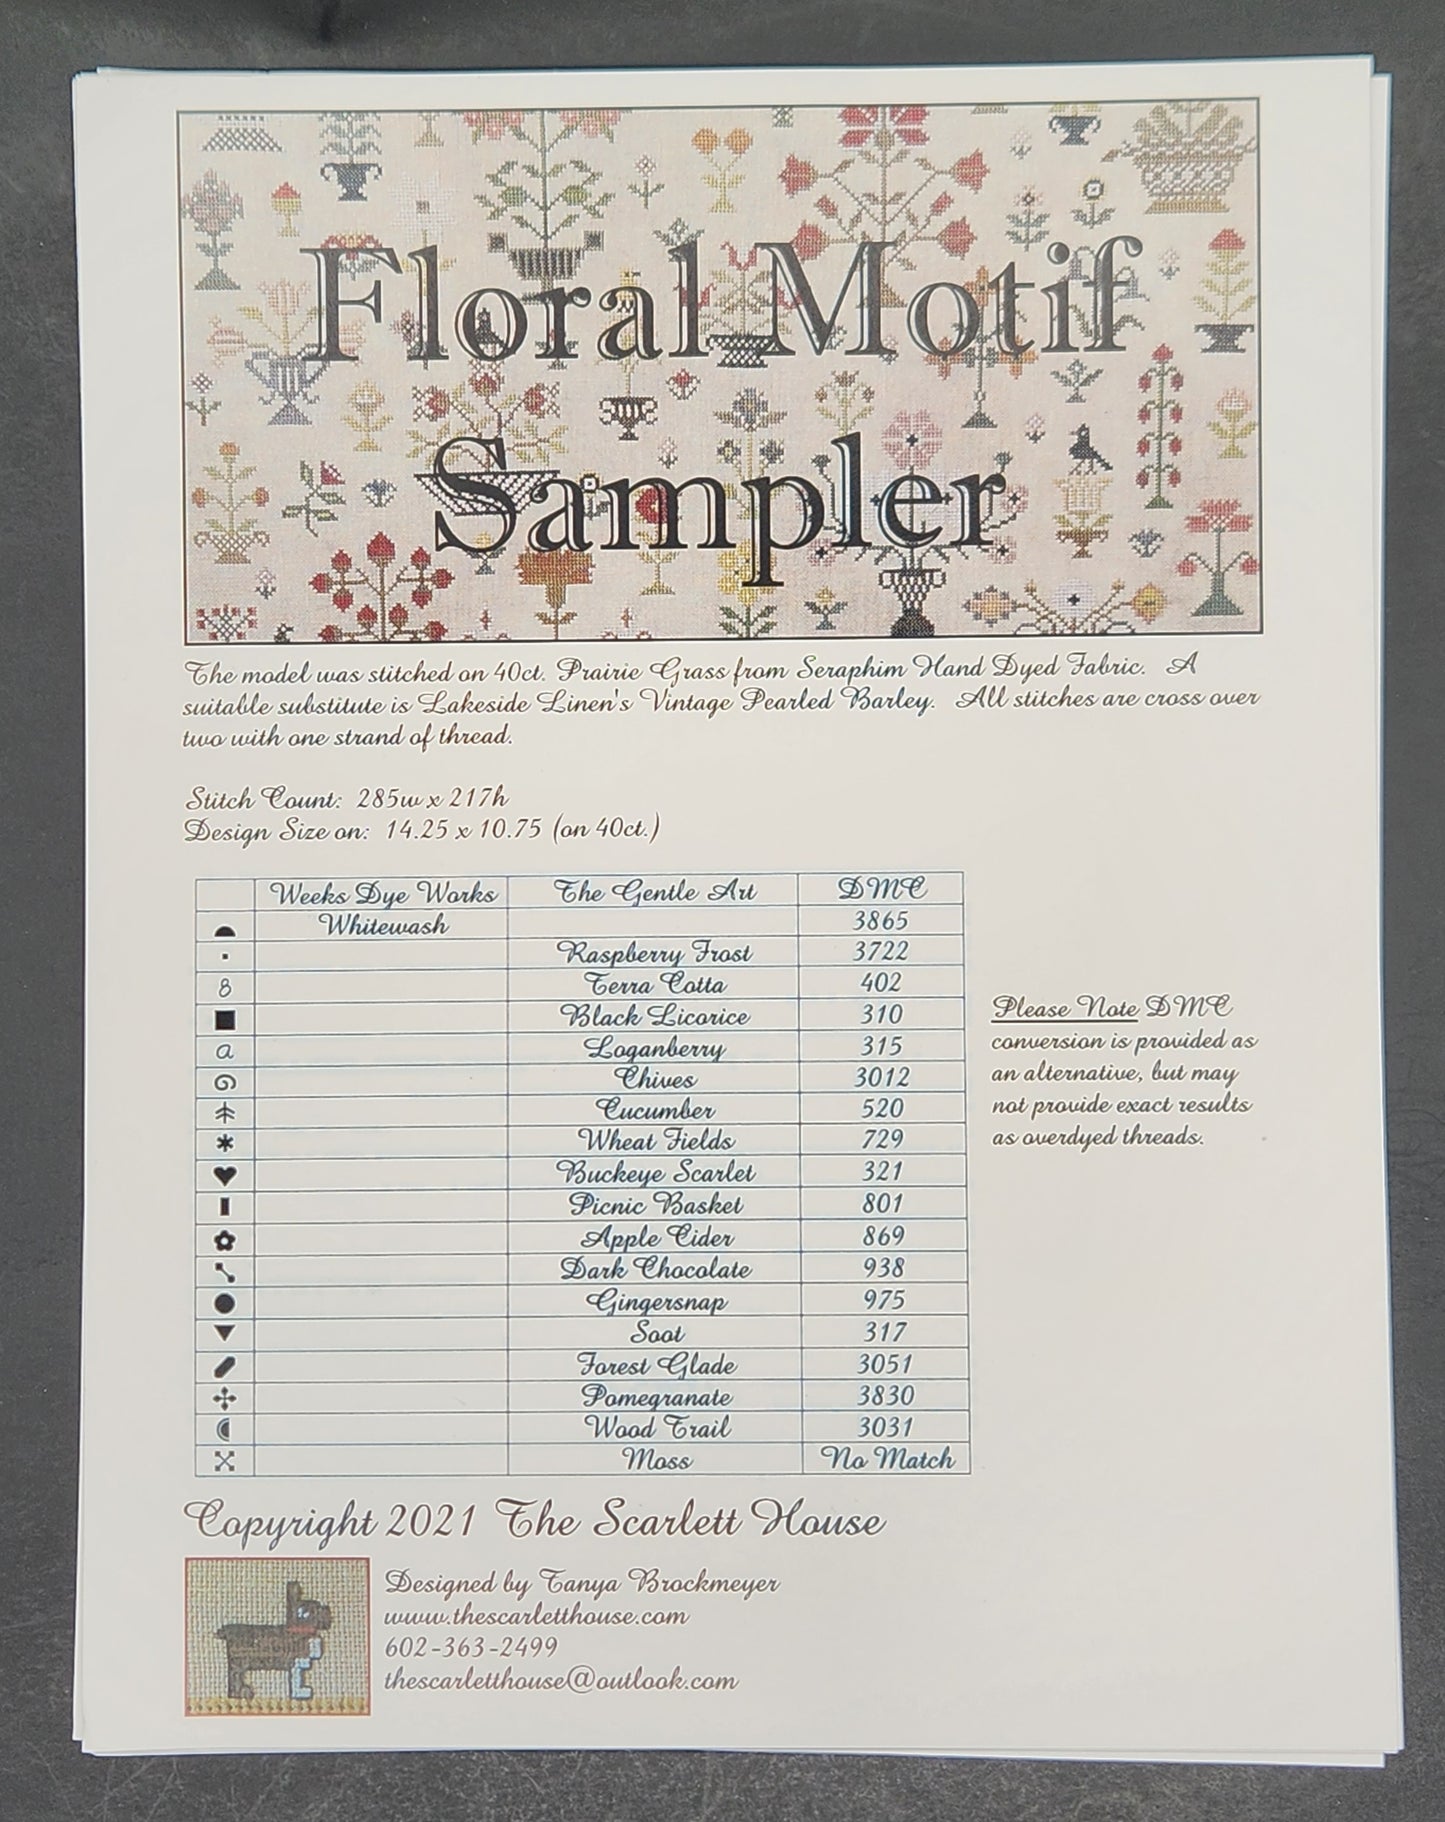 Floral Motif
Sampler
The model was stitched on 40ct. Prairie Grass from Seraphim Hand Dyed Fabric. A
suitable substitute is Lakeside Linen's Vintage Pearled Barley. All stitches are cross over
two with one strand of thread.
Stitch Count: 285w x 217h
Design Size on: 14.25 x 10.75 (on 40ct.)
Weeks Dye Works The Gentle Art DMC
Whitewash 3865
Raspberry Frost 3722
8 Terra Cotta 402
Black Licorice 310
a Loganberry 315
Chives 3012
Cucumber 520
Wheat Fields 729
Buckeye Scarlet 321
Picnic Basket 801
Apple Cider 869
Dark Chocolate 938
Gingersnap 975
Soot 317
Forest Glade 3051
Pomegranate 3830
Wood Trail 3031
Moss No Match
Please Note DMC
conversion is provided as
an alternative, but may
not provide exact results
as overdyed threads.
Copyright 2021 The Scarlett House
Designed by Tanya Brockmeyer
www.thescarletthouse.com
602-363-2499
thescarletthouse@outlook.com